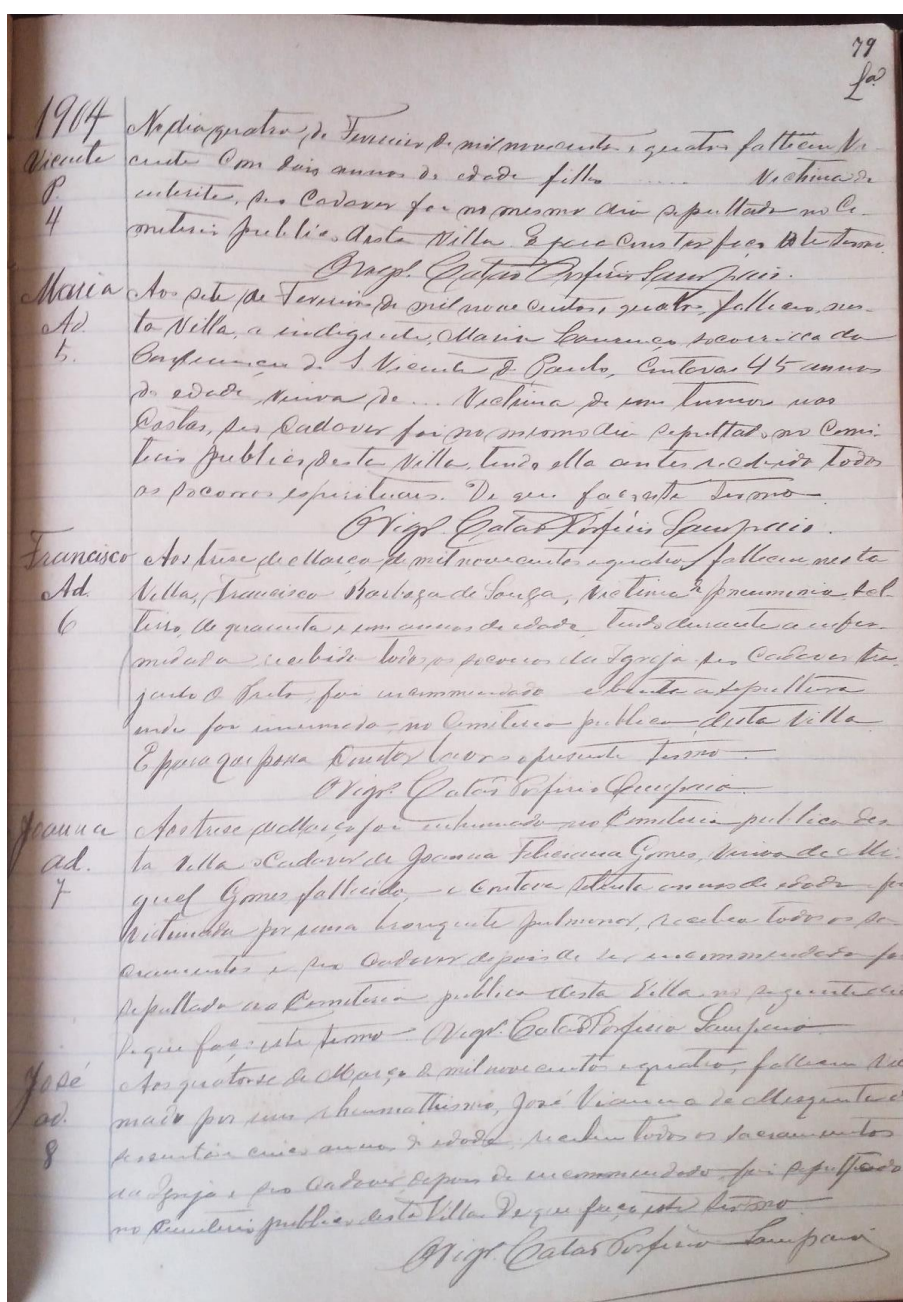 79
1904
No dia quatro de Fevereiro de mil novecentos e quatro falleceu Vi-
Vicente
cente com dois annos de edade filho ..... Victima de
P.
enterite, seo cadaver foi no mesmo dia sepultado no Ce-
4
miterio publico desta Villa. E para constar faço este termo.
O Vigr. Catão Porfirio Sampaio.
Maria
Aos sete de Fevereiro de mil novecentos e quatro, falleceu, nes-
Ad.
ta Villa, a indigente, Maria Lourença, soccorrida da
5.
Conferencia de S. Vicente de Paulo, contava 45 annos
de edade, viuva de ... Victima de um tumor nas
Costas, seo cadaver foi no mesmo dia sepultado no Cemi-
terio publico desta Villa, tendo ella antes recebido todos
os socorros espirituais. De que faço este termo.
O Vigr. Catão Porfirio Sampaio.
Francisco
Aos trese de Março de mil novecentos e quatro, falleceu nesta
Ad.
Villa, Francisco Barboza de Souza, victima de pneumonia, sol-
6
teiro, de quarenta e um annos de edade, tendo durante a enfer-
midade recebido todos os socorros da Igreja seo cadaver tra-
jado de preto, foi encommendado e benta a sepultura
onde foi inhumado no Cemiterio publico desta Villa
E para que possa constar lavro o presente termo.
O Vigr. Catão Porfirio Sampaio.
Joanna
Aos trese de Março foi inhumado no Cemiterio publico des-
ad.
ta Villa o cadaver de Joanna Feliciana Gomes, viuva de Mi-
7
guel Gomes fallecido, e contava setenta annos de edade foi
victimada por uma bronquite pulmonar, recebeo todos os sa-
cramentos e seo cadaver depois de ser encommendado foi
sepultado no Cemiterio publico desta Villa no seguinte dia
De que faço este termo O Vigr. Catão Porfirio Sampaio
José
Aos quatorse de Março de mil novecentos e quatro, falleceu victi-
ad.
mado por um rheumathismo, José Vianna de Mesquita
8
sessenta e cinco annos de edade, recebeu todos os sacramentos
da Igreja e seo cadaver depois de encommendado, foi sepultado
no Cemiterio publico desta Villa. De que faço este termo.
O Vigr. Catão Porfirio Sampaio